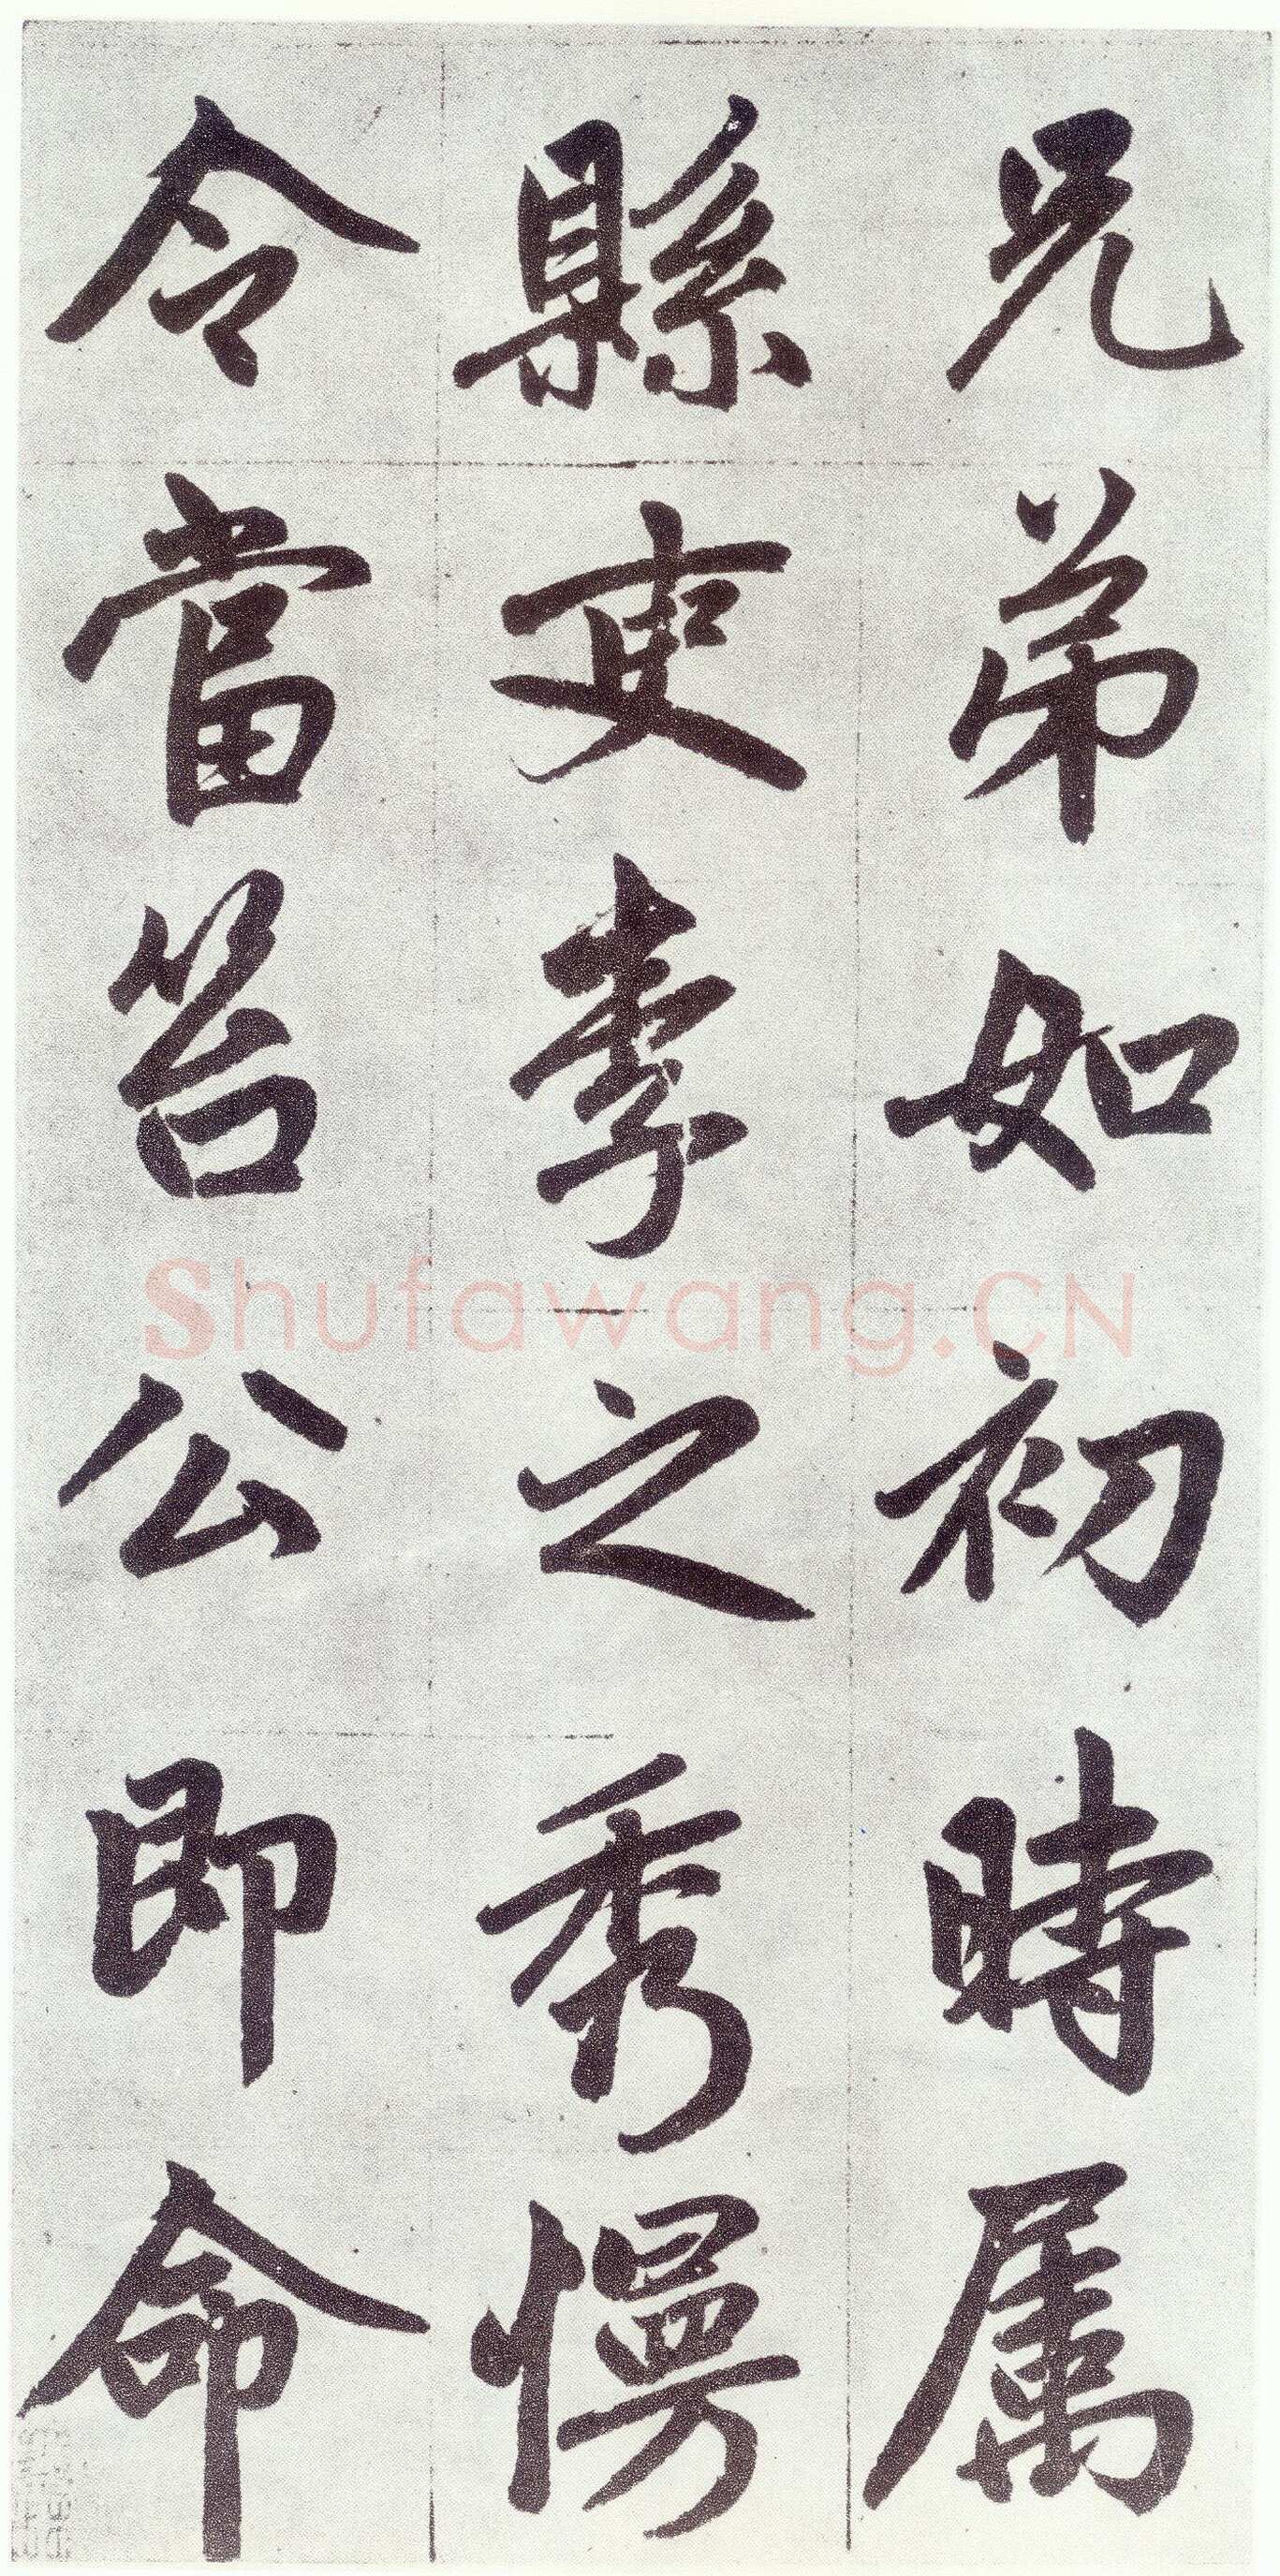 兄弟如初時属
縣吏李之秀慢
令當笞公即命
Shufawang.CN